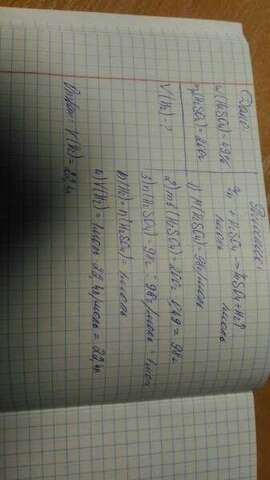 Дано:
w(H2SO4)=49%
m(H2SO4)=200г
V(H2)=?
Решение:
Zn + H2SO4 → ZnSO4+H2↑
1моль 1моль
1) M(H2SO4)=98г/моль
2) mв(H2SO4)=200г·0,49=98г
3) n(H2SO4)=98г:98г/моль=1моль
n(H2)=n(H2SO4)=1моль
4) V(H2)=1моль·22,4л/моль=22,4л
Ответ: V(H2)=22,4л